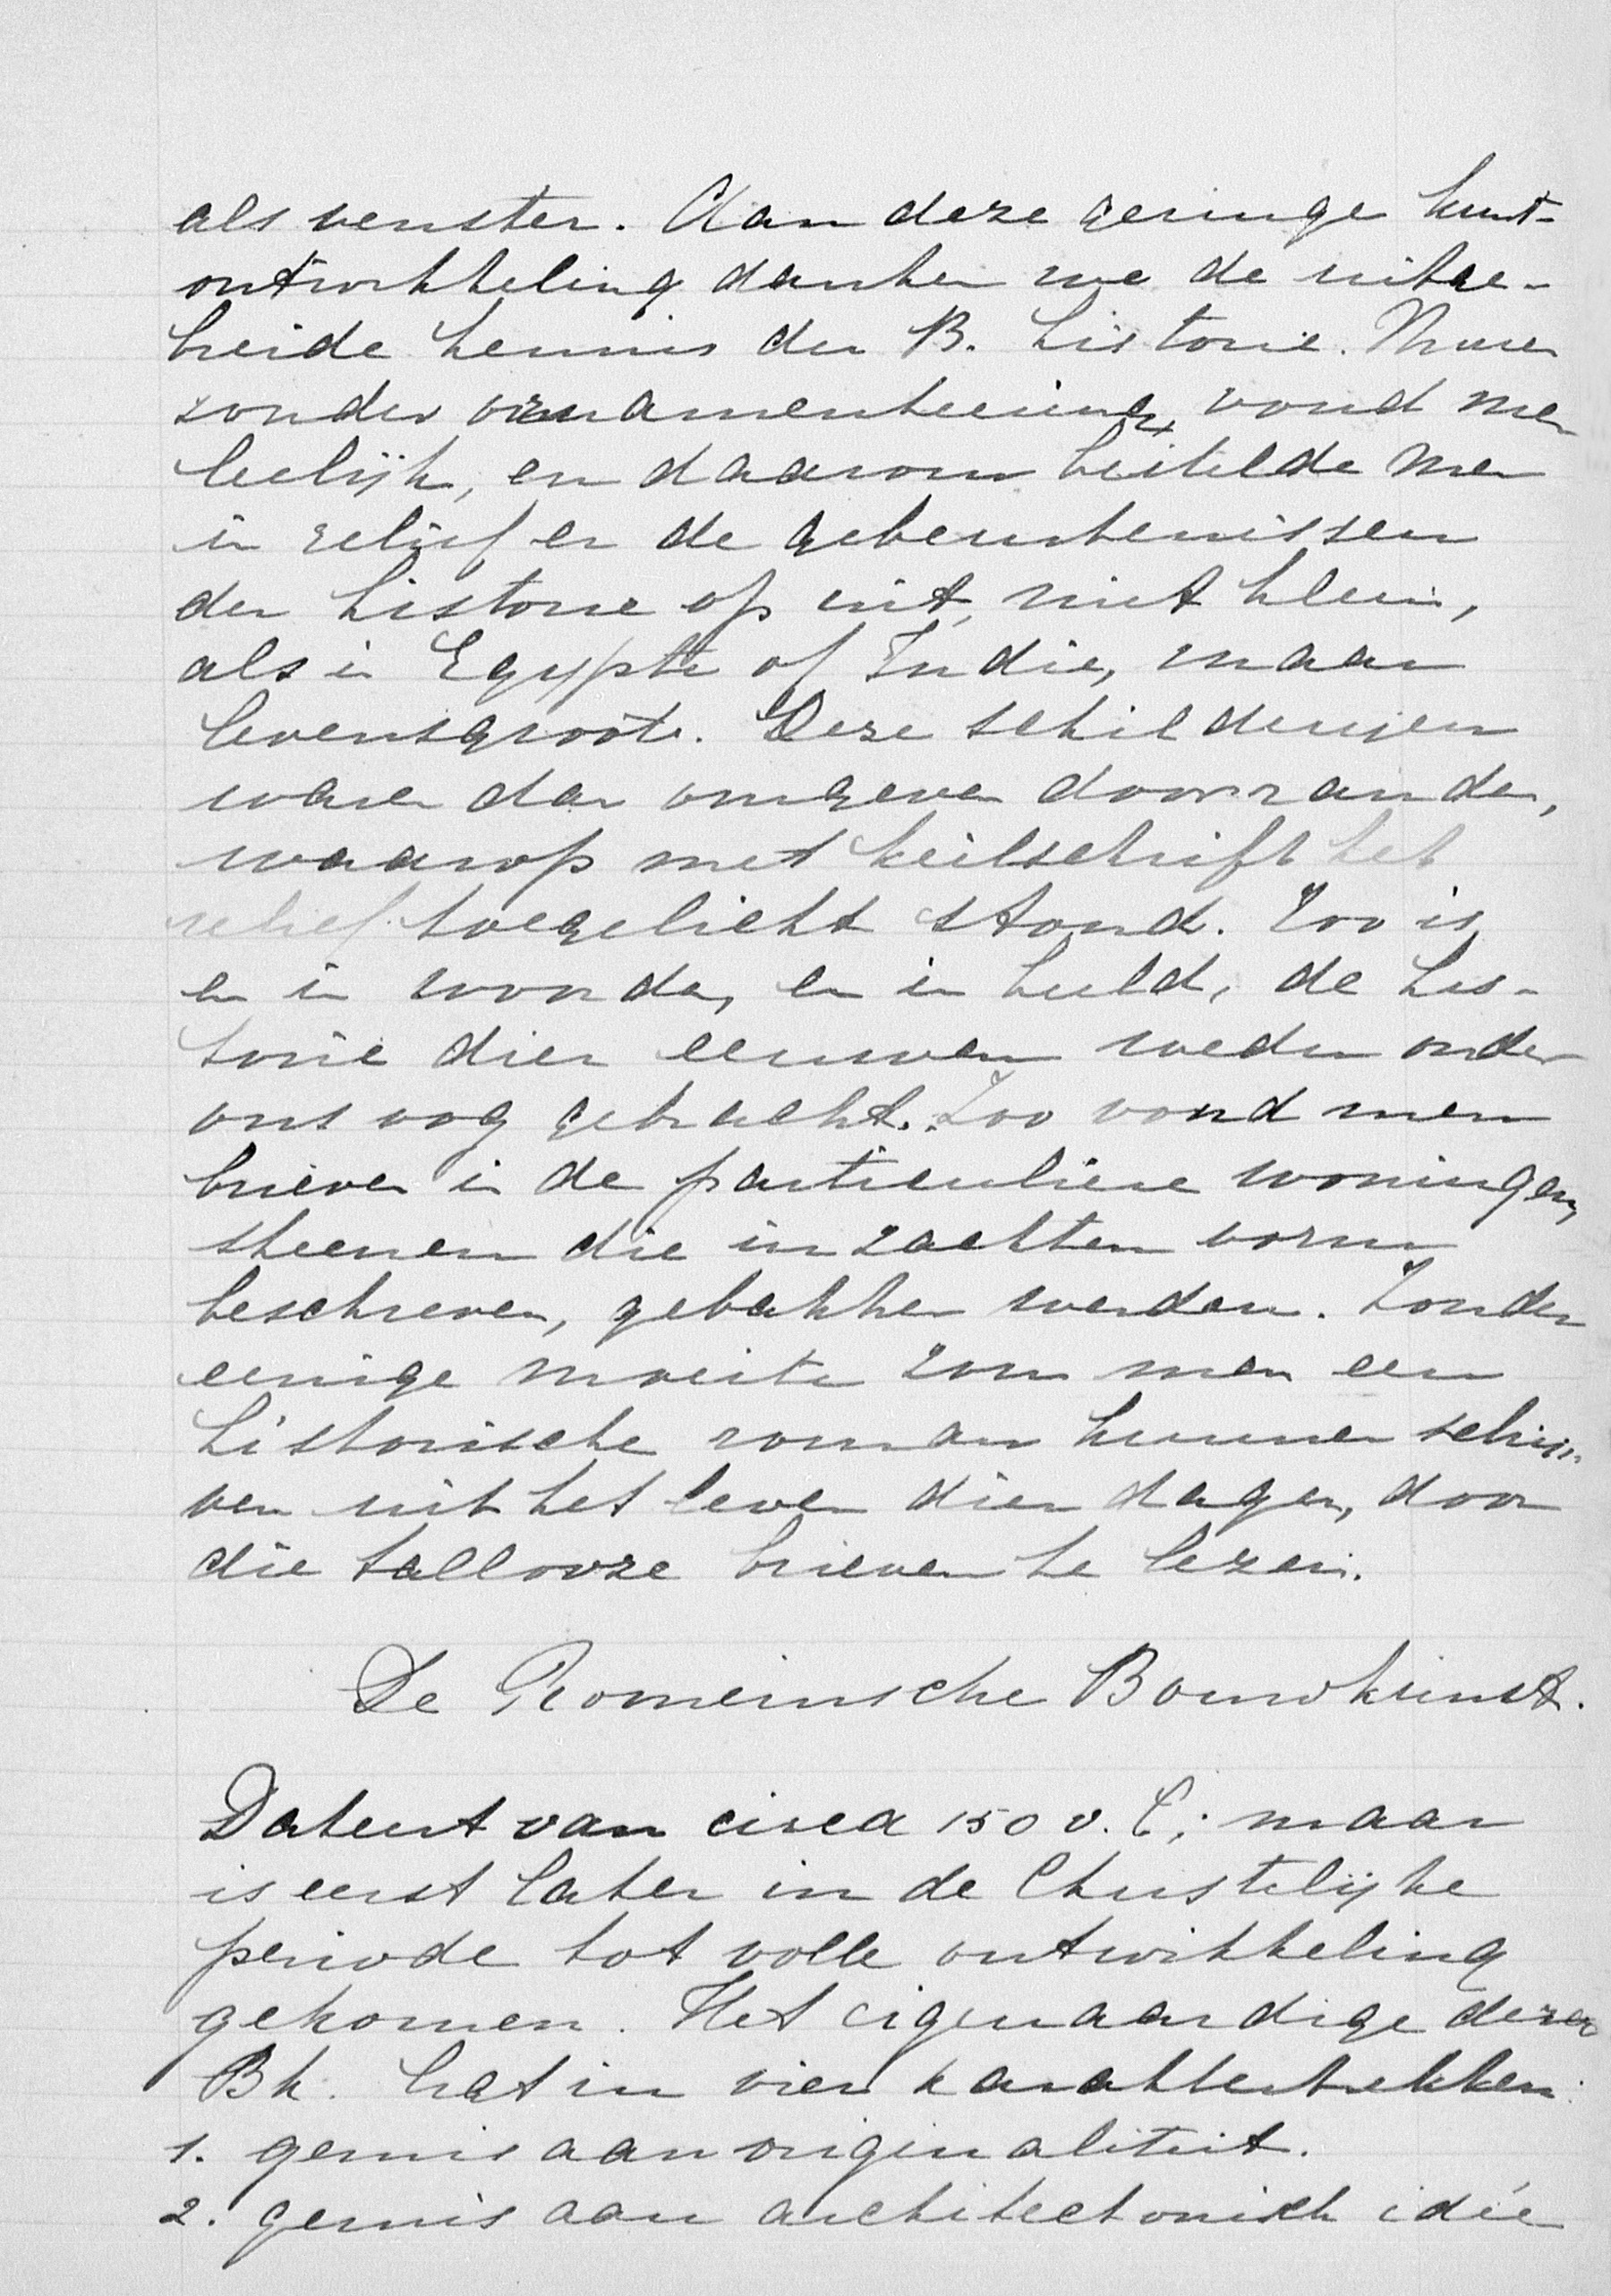 als venster. Aan deze geringe kunst-
ontwikkeling danken we de uitge-
breide kennis der B. historie. Muren
zonder ornamenteering vond men
leelijk, en daarom beitelde men
in relief er de gebeurtenissen
der historie op uit, niet klein,
als in Egypte of Indie, maar
levensgroote. Deze schilderijen
waren dan omgeven door randen,
waarop met keilschrift het
relief toegelicht stond. Zoo is
en in woorden, en in beeld, de his-
torie dier eeuwen weder onder
ons oog gebracht. Zoo vond men
brieven in de particuliere woningen,
steenen die in zachten vorm
beschreven, gebakken werden. Zonder
eenige moeite zou men een
historische roman kunnen schrij-
ven uit het leven dier dagen, door
die tallooze brieven te lezen.
De Romeinsche Bouwkunst.
Dateert van circa 150 v. C; maar
is eerst later in de Christelijke
periode tot volle ontwikkeling
gekomen. Het eigenaardige dezer
Bk. lag in vier karaktertrekken:
1. gemis aan originaliteit.
2. gemis aan architectonisch idée